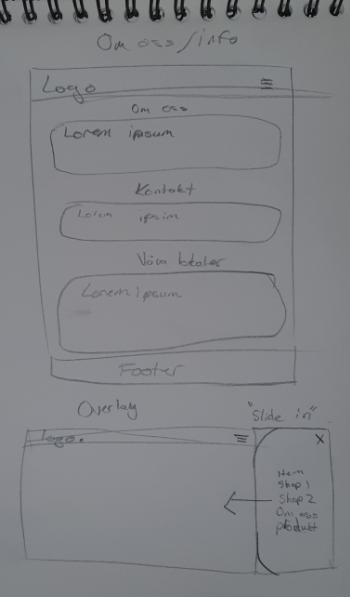 Om oss/info
Logo
Om oss
Lorem ipsum
Kontakt
Lorem ipsim
Våra lokaler
Lorem ipsum
Footer
Overlay
"Slide in"
Logo.
X
Hem
Shop 1
Shop 2
Om oss
product